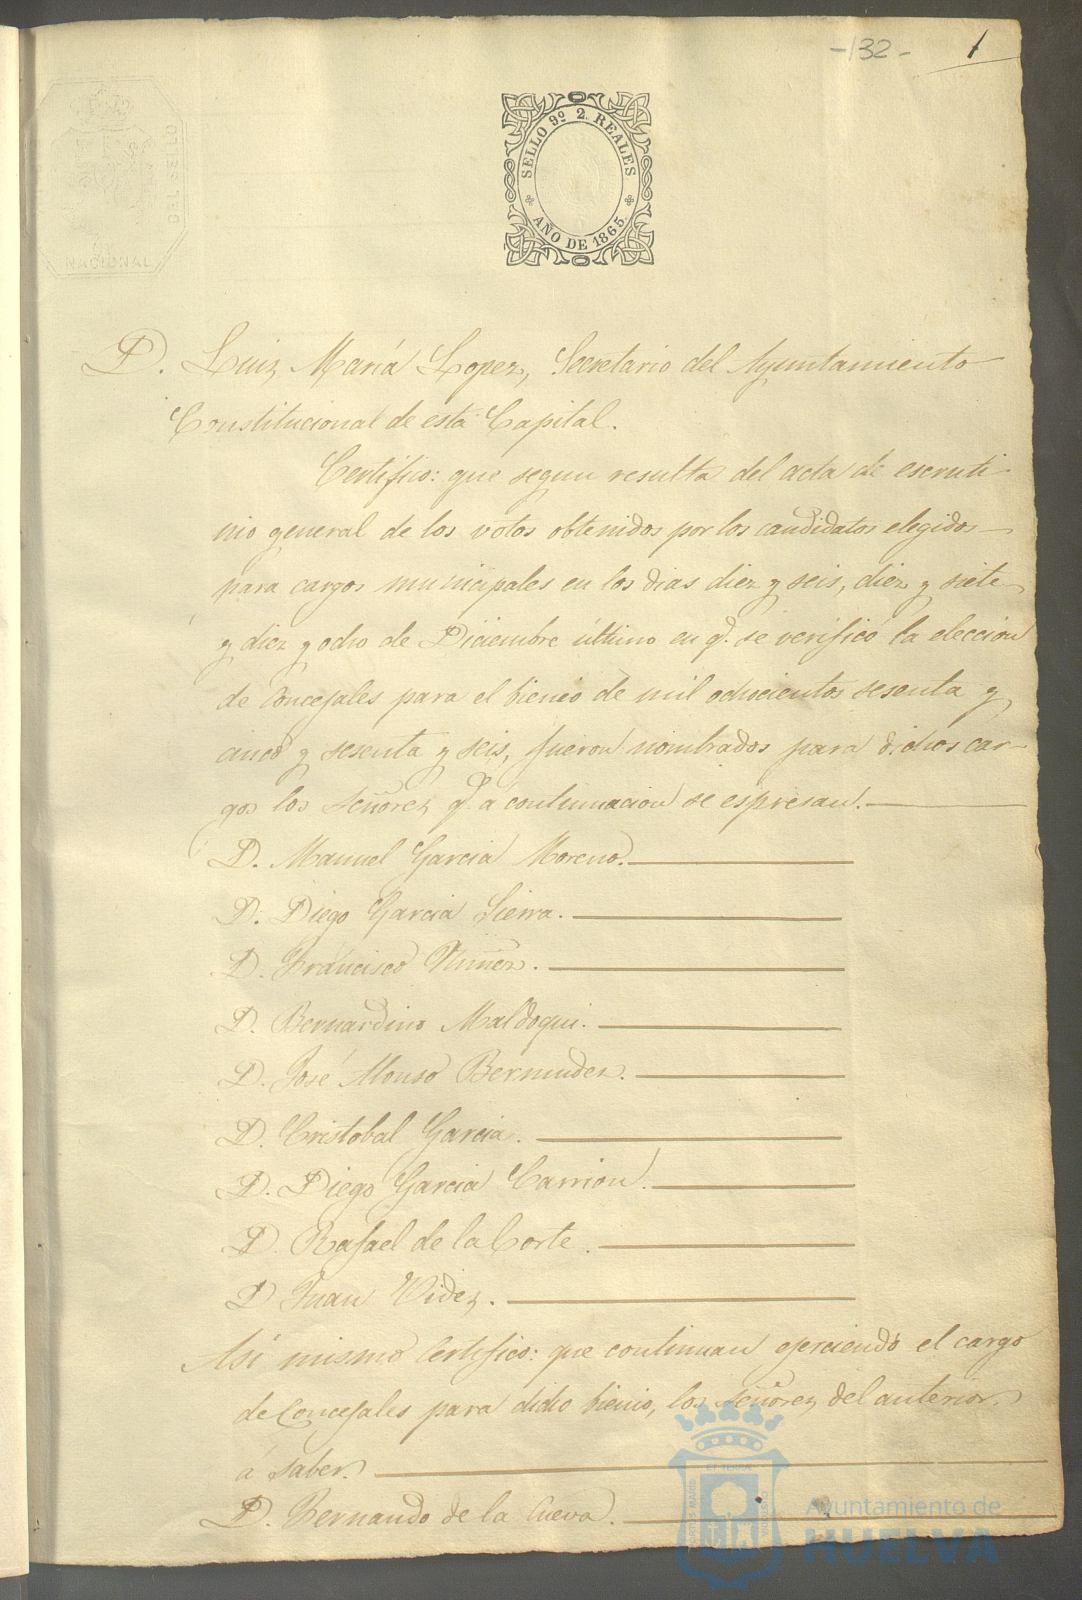 -132- 1
SELLO 9º 2 REALES
AÑO DE 1865.
DEL SELLO
NACIONAL
D. Luiz María Lopez, Secretario del Ayuntamiento
Constitucional de esta Capital.
Certifico: que segun resulta del acta de escruti-
nio general de los votos obtenidos por los candidatos elegidos
para cargos municipales en los dias diez y seis, diez y siete
y diez y ocho de Diciembre último en q.e se verificó la eleccion
de Concejales para el bienio de mil ochocientos sesenta y
cinco y sesenta y seis, fueron nombrados para dichos car-
gos los Señorez q.e a continuacion se espresan.
D. Manuel Garcia Moreno.
D. Diego Garcia Sierra.
D. Francisco Nuñez.
D. Bernardino Maldoqui.
D. José Alonso Bermudez.
D. Cristobal Garcia.
D. Diego Garcia Carrion.
D. Rafael de la Corte.
D Juan Videz.
Asi mismo Certifico: que continuan ejerciendo el cargo
de Concejales para dicho bienio, los Señorez del anterior.
á saber.
D. Bernardo de la Cueva.
Ayuntamiento de
HUELVA